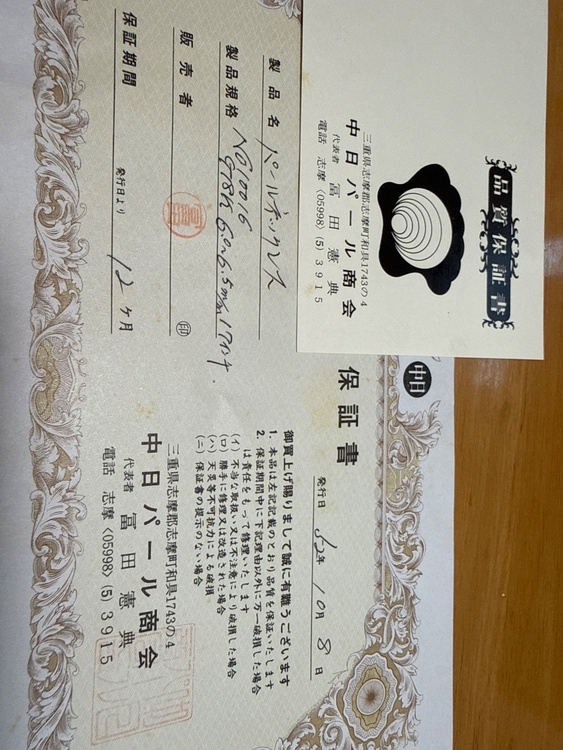 品質保証書
三重県志摩郡志摩町和具1743の4
中日パール商会
代表者 冨田憲典
電話 志摩〈05998〉(5)3915
中日
保証書
発行日 62年10月8日
御買上げ賜りまして誠に有難うございます
1. 本品は左記記載のとおり品質を保証いたします
2. 保証期間中に下記理由以外に万一破損した場合
は責任をもって修理いたします
(イ) 不当な取扱い又は不注意により破損した場合
(ロ) 勝手に修理又は改造された場合
(ハ) 天災等不可抗力による破損
(ニ) 保証書の提示のない場合
三重県志摩郡志摩町和具1743の4
中日パール商会
代表者 冨田憲典
電話 志摩〈05998〉(5)3915
製品名 パールネックレス
製品規格 NO1006
6.0×6.5mm
販売者 ㊞
保証期間 発行日より 12ヶ月